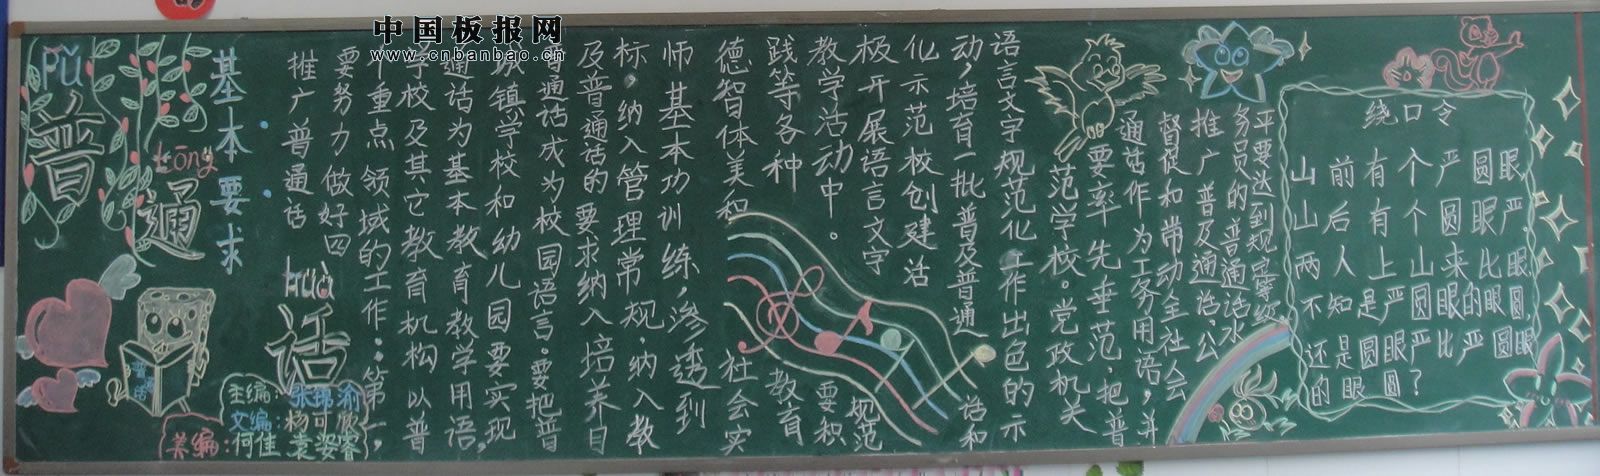 中国板报网
www.cnbanbao.cn
Pǔ
普
tōng
通
huà
话
基本要求
推广普通话
要努力做好四
个重点领域的工作:第一,
学校及其它教育机构以普
通话为基本教育教学用语,
城镇学校和幼儿园要实现
普通话成为校园语言.要把普
及普通话的要求纳入培养目
标,纳入管理常规,纳入教
师基本功训练,渗透到
德智体美和社会实
践等各种教育
教学活动中。要积
极开展语言文字规范
化示范校创建活
动,培育一批普及普通话和
语言文字规范化工作出色的示
范学校。党政机关
要率先垂范,把普
通话作为工务用语,并
督促和带动全社会
推广普及通话.公
务员的普通话水
平要达到规定等级
主编:张瑾渝
文编:杨可欣
美编:何佳 袁姿睿
绕口令
山前有个严圆眼,
山后有个圆眼严,
两人上山来比眼,
不知是严圆眼的眼圆,
还是圆眼严比严圆眼
的眼圆?